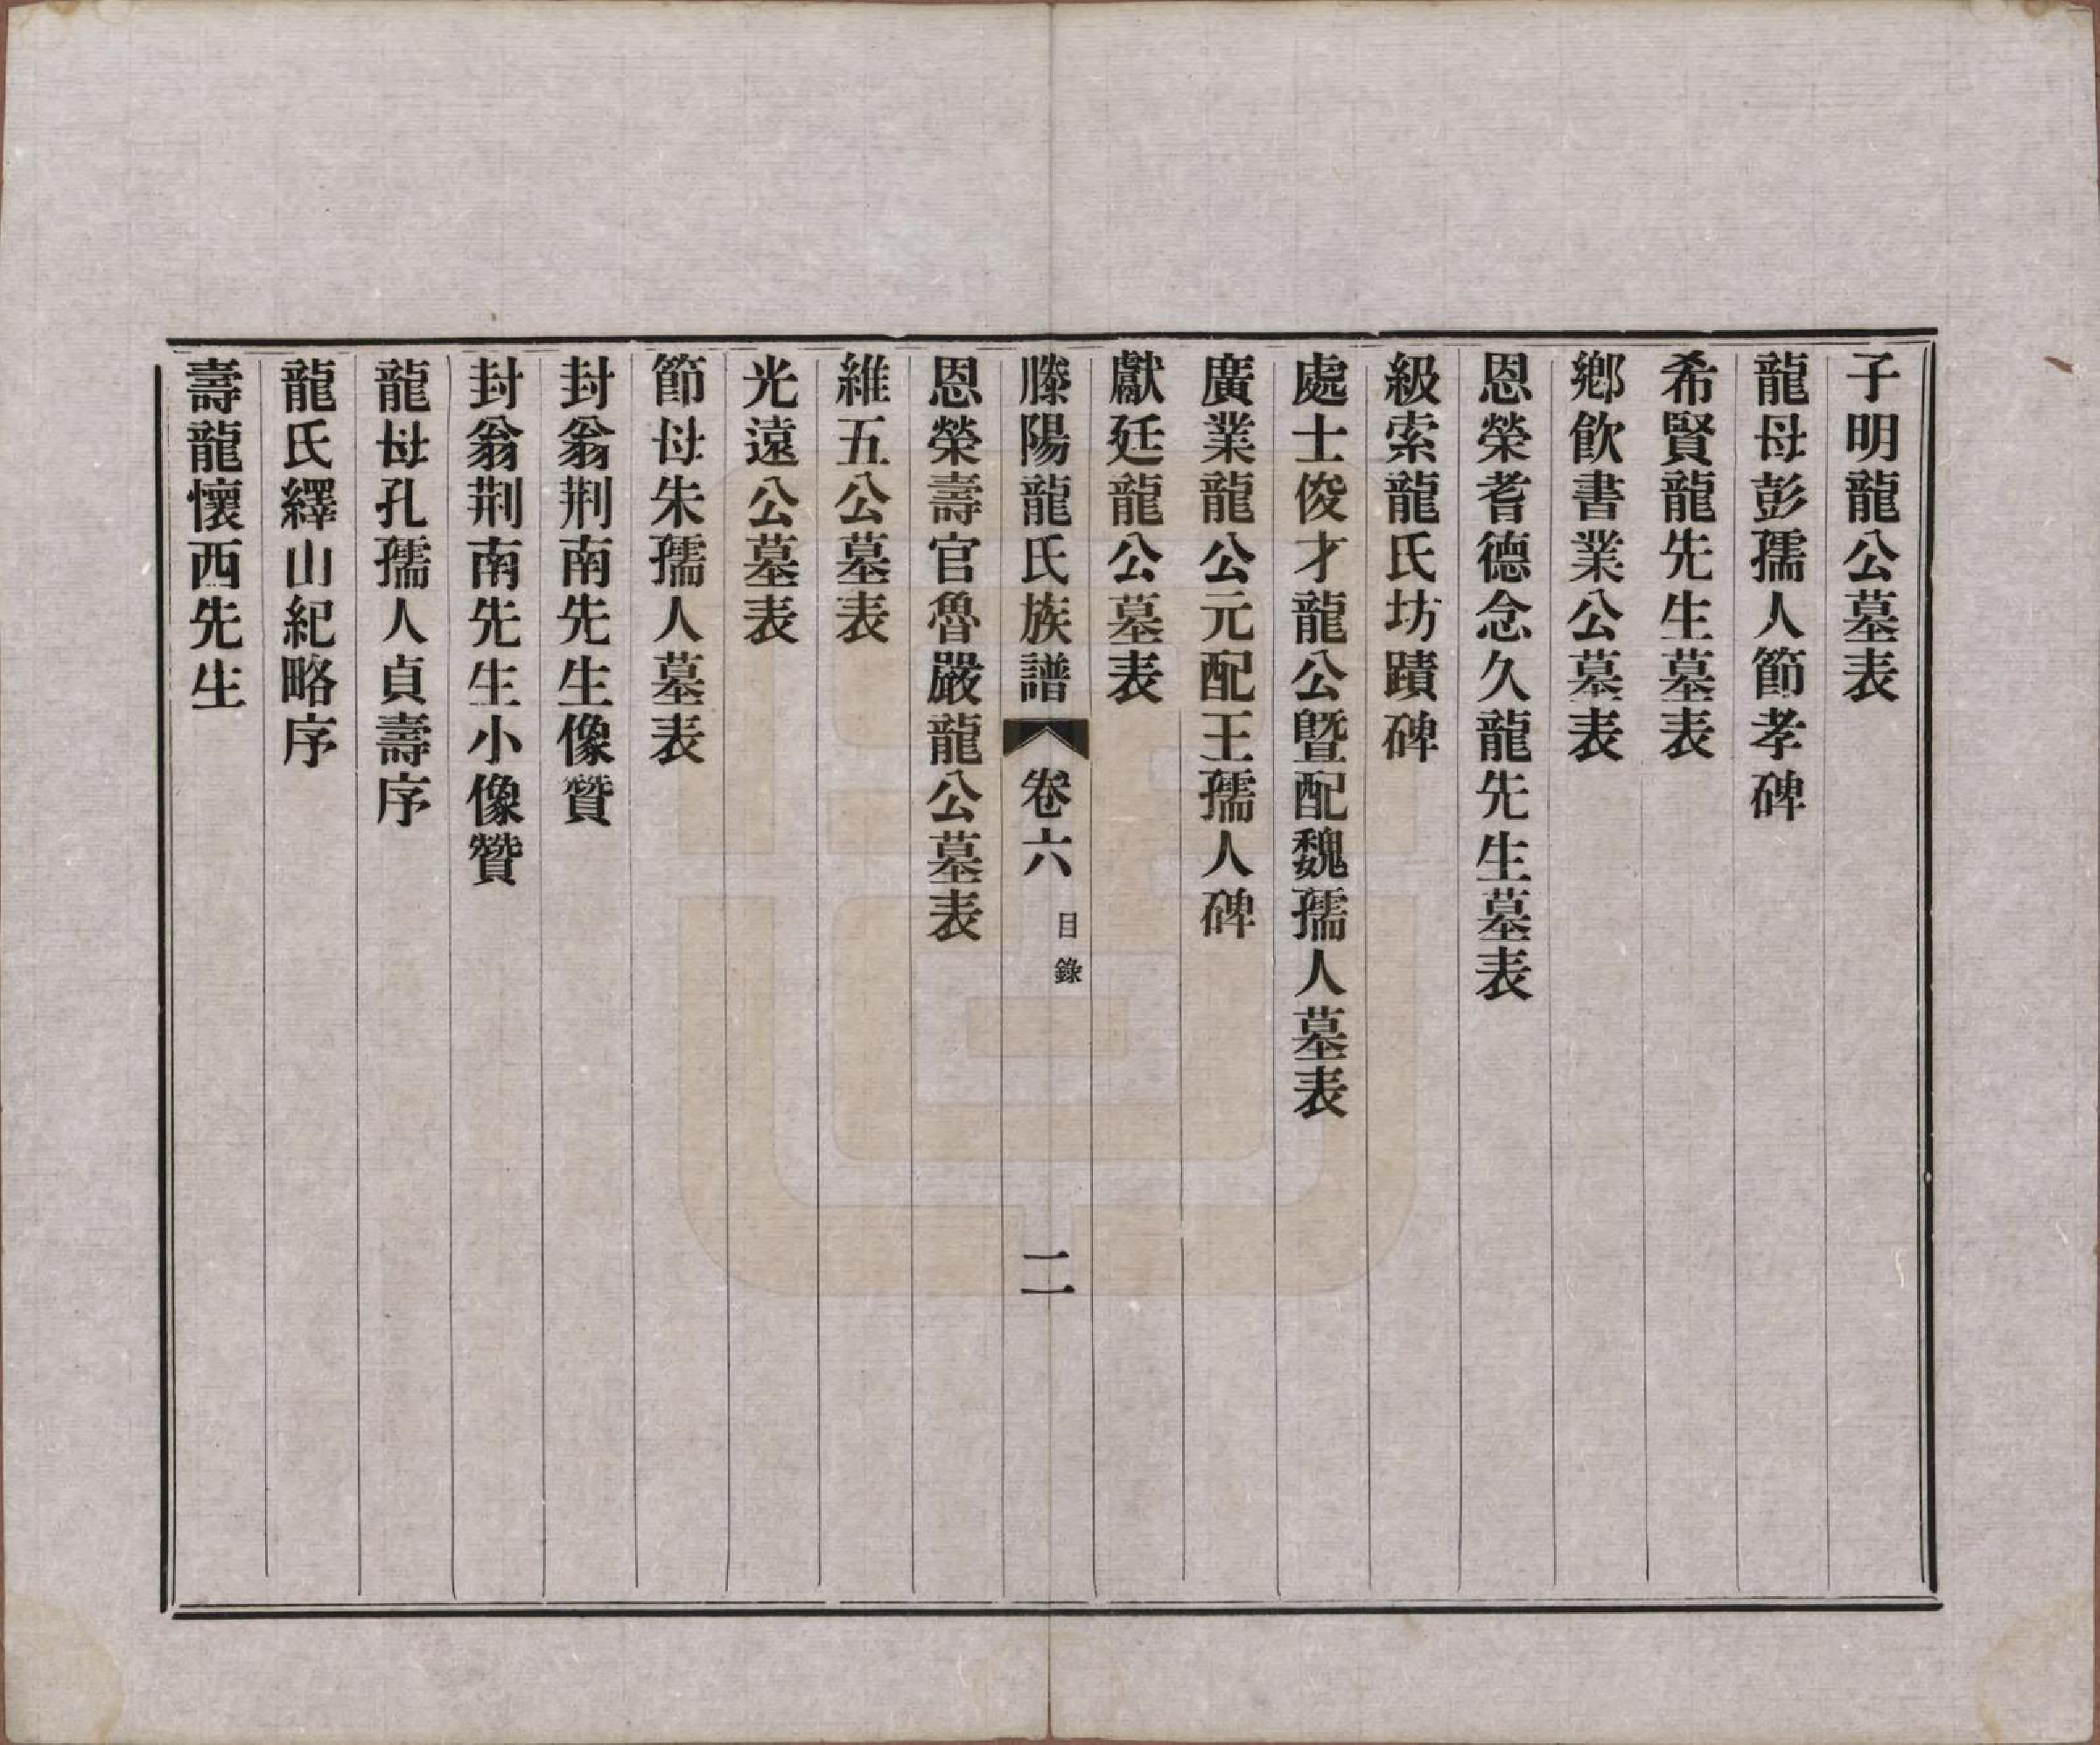 子明龍公墓表
龍母彭孺人節孝碑
希賢龍先生墓表
鄉飲書業公墓表
恩榮耆德念久龍先生墓表
級索龍氏坊蹟碑
處士俊才龍公曁配魏孺人墓表
廣業龍公元配王孺人碑
獻廷龍公墓表
滕陽龍氏族譜 卷六 目錄 二
恩榮壽官魯嚴龍公墓表
維五公墓表
光遠公墓表
節母朱孺人墓表
封翁荆南先生像贊
封翁荆南先生小像贊
龍母孔孺人貞壽序
龍氏繹山紀略序
壽龍懷西先生